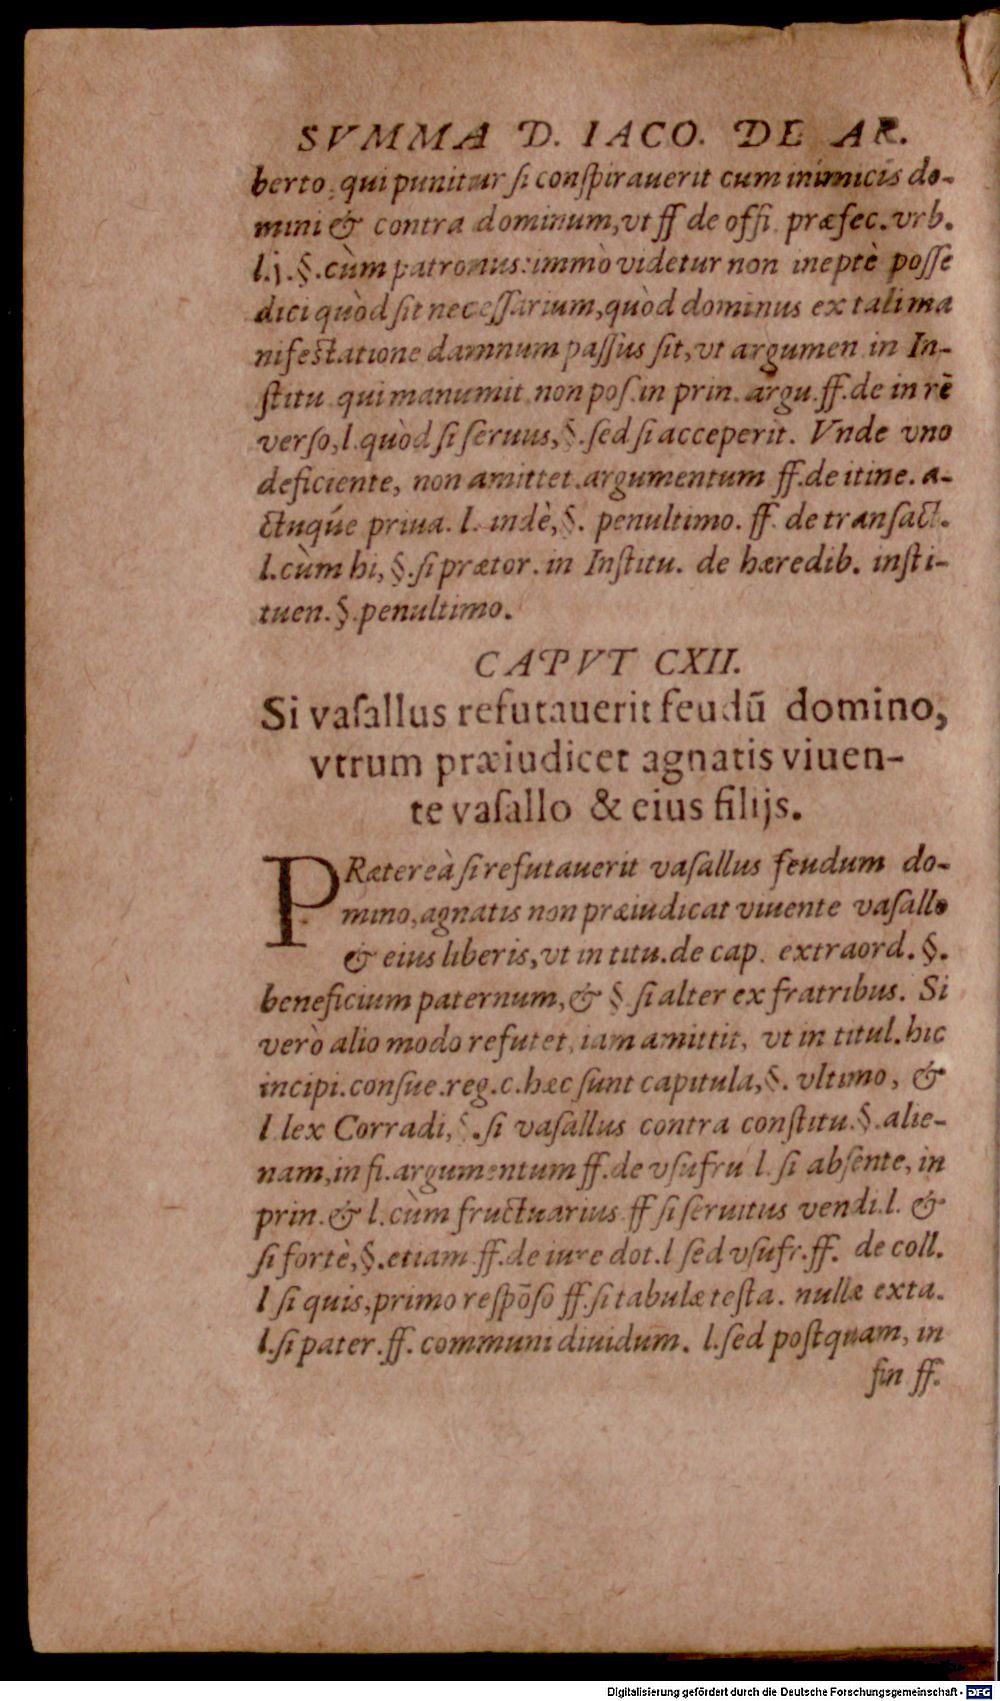 SVMMA D. IACO. DE AR.
berto, qui punitur si conspirauerit cum inimicis do-
mini & contra dominum, vt ff de offi. præfec. vrb.
l.j.§.cùm patronus: immò videtur non ineptè posse
dici quòd sit necessarium, quòd dominus ex tali ma
nifestatione damnum passus sit, vt argumen in In-
stitu qui manumit non pos. in prin. argu. ff. de in rē
verso, l. quòd si seruus, §. sed si acceperit. Vnde vno
deficiente, non amittet. argumentum ff. de itine. a-
ctuqúe priua. l. indè, §. penultimo. ff. de transact.
l.cùm hi, §. si prætor. in Institu. de hæredib. insti-
tuen. §. penultimo.
CAPVT CXII.
Si vasallus refutauerit feudū domino,
vtrum præiudicet agnatis viuen-
te vasallo & eius filijs.
PRætereà si refutauerit vasallus feudum do-
mino, agnatis non præiudicat viuente vasallo
& eius liberis, vt in titu. de cap. extraord. §.
beneficium paternum, & § si alter ex fratribus. Si
verò alio modo refutet, iam amittit, vt in titul. hic
incipi. consue. reg. c. hæc sunt capitula, §. vltimo, &
l lex Corradi, §. si vasallus contra constitu. §. alie-
nam, in fi. argumentum ff. de vsufru l. si absente, in
prin. & l. cùm fructuarius ff si seruitus vendi. l. &
si fortè, §. etiam ff. de iure dot. l sed vsufr. ff. de coll.
l si quis, primo respōso ff. si tabulæ testa. nullæ exta.
l. si pater. ff. communi diuidum. l. sed postquam, in
fin ff.
Digitalisierung gefördert durch die Deutsche Forschungsgemeinschaft - DFG